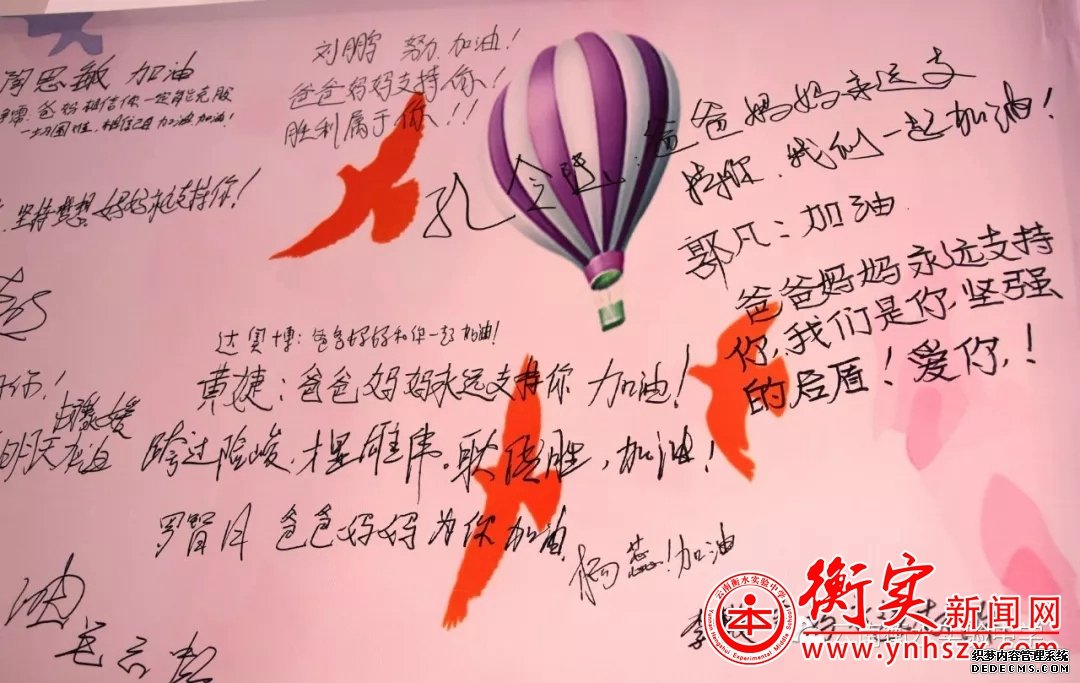 陶思敏 加油
爸妈相信你一定能克服
一切困难,相信自己加油加油!
坚持梦想 妈妈永远支持你!
刘鹏 努力加油!
爸爸妈妈支持你!
胜利属于你!!
爸爸妈妈永远支
持你,我们一起加油!
郭凡:加油
爸爸妈妈永远支持
你,我们是你坚强
的后盾!爱你,!
达奥博:爸爸妈妈和你一起加油!
黄婕:爸爸妈妈永远支持你 加油!
跨过险峻,才是雄伟。耿德胜,加油!
罗智月 爸爸妈妈为你加油
杨蕊!加油
云南衡水实验中学
Yunnan Hengshui Experimental Middle School
衡实新闻网
www.ynhszx.com
织梦内容管理系统
DEDECMS.COM